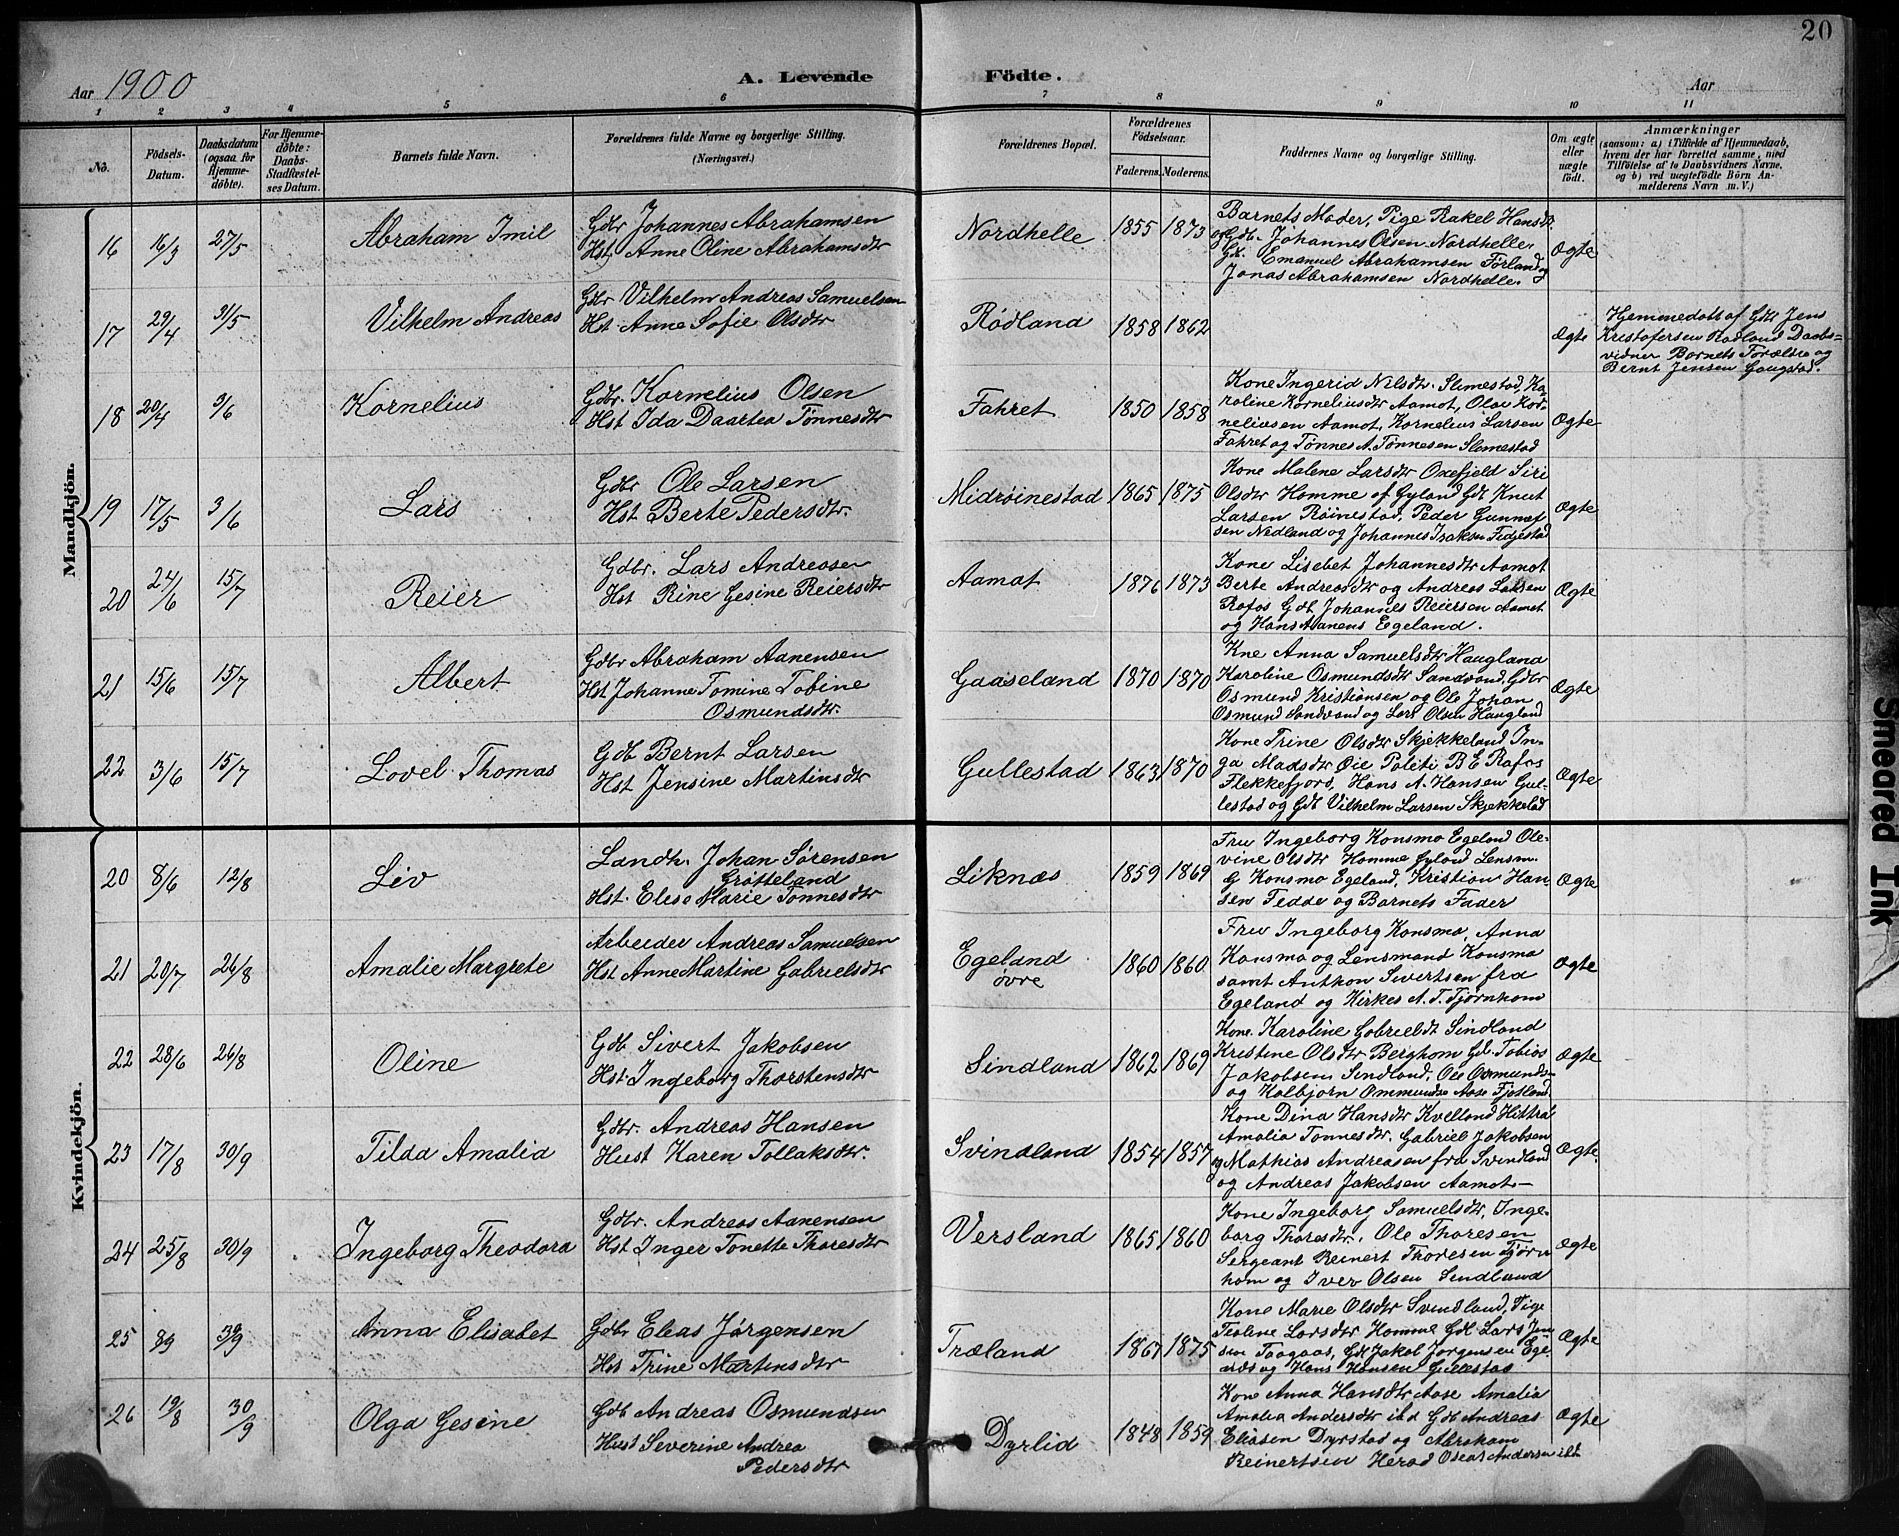 20
Aar 1900
A. Levende
Födte.
Aar
1 2 3 4 5 6 7 8 9 10 11
No.
Födsels-
Datum.
Daabsdatum
(ogsaa for
Hjemme-
döbte).
For Hjemme-
döbte:
Daabs-
Stadfæstel-
ses Datum.
Barnets fulde Navn.
Forældrenes fulde Navne og borgerlige Stilling.
(Næringsvei.)
Forældrenes Bopæl.
Forældrenes
Födselsaar.
Faderens. Moderens.
Faddernes Navne og borgerlige Stilling.
Om ægte
eller
uægte
födt.
Anmærkninger
(saasom: a) i Tilfælde af Hjemmedaab,
hvem der har forrettet samme, med
Tilföielse af to Daabsvidners Navne,
og b) ved uægtefödte Börn An-
melderens Navn m. V.)
Mandkjön.
16 16/3 27/5 Abraham Imil
Gdbr Johannes Abrahamsen
Hst Anne Oline Abrahamsdtr
Nordhelle 1855 1873
Barnets Moder, Pige Rakel Hansd.
og Gdb. Johannes Olsen Nordhelle.
Gk. Emanuel Abrahamsen Førland og
Jonas Abrahamsen Nordhelle.
Ægte
17 29/4 31/5 Vilhelm Andreas
Gdbr Vilhelm Andreas Samuelsen
Hst. Anne Sofie Olsdtr
Rødland 1858 1862
Ægte
Hjemmedøbt af Gdb Jens
Kristofersen Rødland Daabs-
vidner Barnets Forældre og
Bernt Jensen Gaugstad.
18 20/4 3/6 Kornelius
Gdbr. Kornelius Olsen
Hst Ida Daartea Tønnesdtr
Fahret 1850 1858
Kone Ingerid Nilsdtr. Slimestad, Ka-
roline Korneliusdtr Aamot, Olav Kor-
neliusen Aamot, Kornelius Larsen
Fahret og Tønnes A. Tønnesen Slimestad
Ægte
19 17/5 3/6 Lars
Gdbr Ole Larsen
Hst Berte Pedersdtr.
Midrøinestad 1865 1875
Kone Malene Larsdtr Oxefjeld Siri
Olsdtr Homme af Gyland Gdb Knut
Larsen Røinestad, Peder Gunnuf-
sen Nedland og Johannes Isaksen Fedjestad
Ægte
20 24/6 15/7 Reier
Gdbr. Lars Andreasen
Hst Rine Gesine Reiersdtr
Aamot 1876 1873
Kone Lisebet Johannesdtr Aamot
Berte Andreasdtr og Andreas Larsen
Rafos Gdb Johannes Reiersen Aamot
og Hans Aanens Egeland.
Ægte
21 15/6 15/7 Albert
Gdbr Abraham Aanensen
Hst Johanne Tomine Tobine
Osmundsdtr.
Gaaseland 1870 1870
Kne Anna Samuelsdtr Haugland
Karoline Osmundsdtr Sandvand, Gdbr
Osmund Kristiansen og Ole Johan
Osmund Sandvand og Lars Olsen Haugland
Ægte
22 3/6 15/7 Lovel. Thomas
Gdb Bernt Larsen
Hst Jensine Martinsdtr
Gullestad 1863 1870
Kone Trine Olsdtr Skjekkeland In-
ga Madsdtr Øie Politi B E Rafos
Flekkefjord, Hans A. Hansen Gul-
lestad og Gdb Vilhelm Larsen Skjekkelad
Ægte
Kvindekjön.
20 8/6 12/8 Liv
Landh. Johan Sørensen
Grøtteland
Hst. Elise Marie Tønnesdtr
Liknæs 1859 1869
Fru Ingeborg Konsmo Egeland Ole-
vine Olsdtr Homme Gyland Lensm.
G Konsmo Egeland, Kristian Han-
sen Fedde og Barnets Fader
Ægte
21 20/7 26/8 Amalie Margrete
Arbeider Andreas Samuelsen
Hst Anne Martine Gabrielsdtr
Egeland
øvre
1860 1860
Fru Ingeborg Konsmo, Anna
Konsmo og Lensmand Konsmo
samt Anthon Sivertsen fra
Egeland og Kirkes A. T. Tjørnhom
Ægte
22 28/6 26/8 Oline
Gdb Sivert Jakobsen
Hst. Ingeborg Thorstensdtr
Sindland 1862 1869
Kone. Karoline Gabrieldt Sindland
Kristine Olsdtr Berghom Gdb. Tobias
Jakobsen Sindland, Ole Osmunds-
og Kolbjørn Ommundse Aase Fjotland
Ægte
23 17/8 30/9 Tilda Amalia
Gdbr. Andreas Hansen
Hust Karen Tollaksdtr.
Svindland 1854 1857
Kone Dina Hansdtr Kvelland Hittra
Amalia Tonnesdtr. Gabriel Jakobsen
og Mathias Andreasen fra Svindland
og Andreas Jakobsen Aamot-
Ægte.
24 25/8 30/9 Ingeborg Theodora
Gdbr. Andreas Aanensen
Hst Inger Tonette Thoresdtr
Versland 1865 1860
Kone Ingeborg Samuelsdtr, Inge-
borg Thoresdtr. Ole Thoresen
Sergeant Reinert Thoresen Tjørn
hom og Iver Olsen Sindland
Ægte
25 8/9 Anna Elisabet
Gdbr Elias Jørgensen
Hst Trine Martinsdtr
Træland 1867 1875
Kone Marie Olsdtr Svindland, Pige
Teoline Larsdtr Homme Gdb Lars Jen-
sen Taagaas, Gdb Jakob Jørgensen Ege-
og Hans Hansen Gullestad
Ægte
26 19/8 30/9 Olga Gesine
Gdb Andreas Osmundsen
Hust Severine Andrea
Pedersdtr
Dyrlid 1848 1859
Kone Anna Hansdtr Aase Amalia
Amalia Andersdtr ibd Gdb Andreas
Eliasen Dyrstad og Abraham
Reinertsen Herad Oscar Andersen ibd
Ægte
Smeared Ink